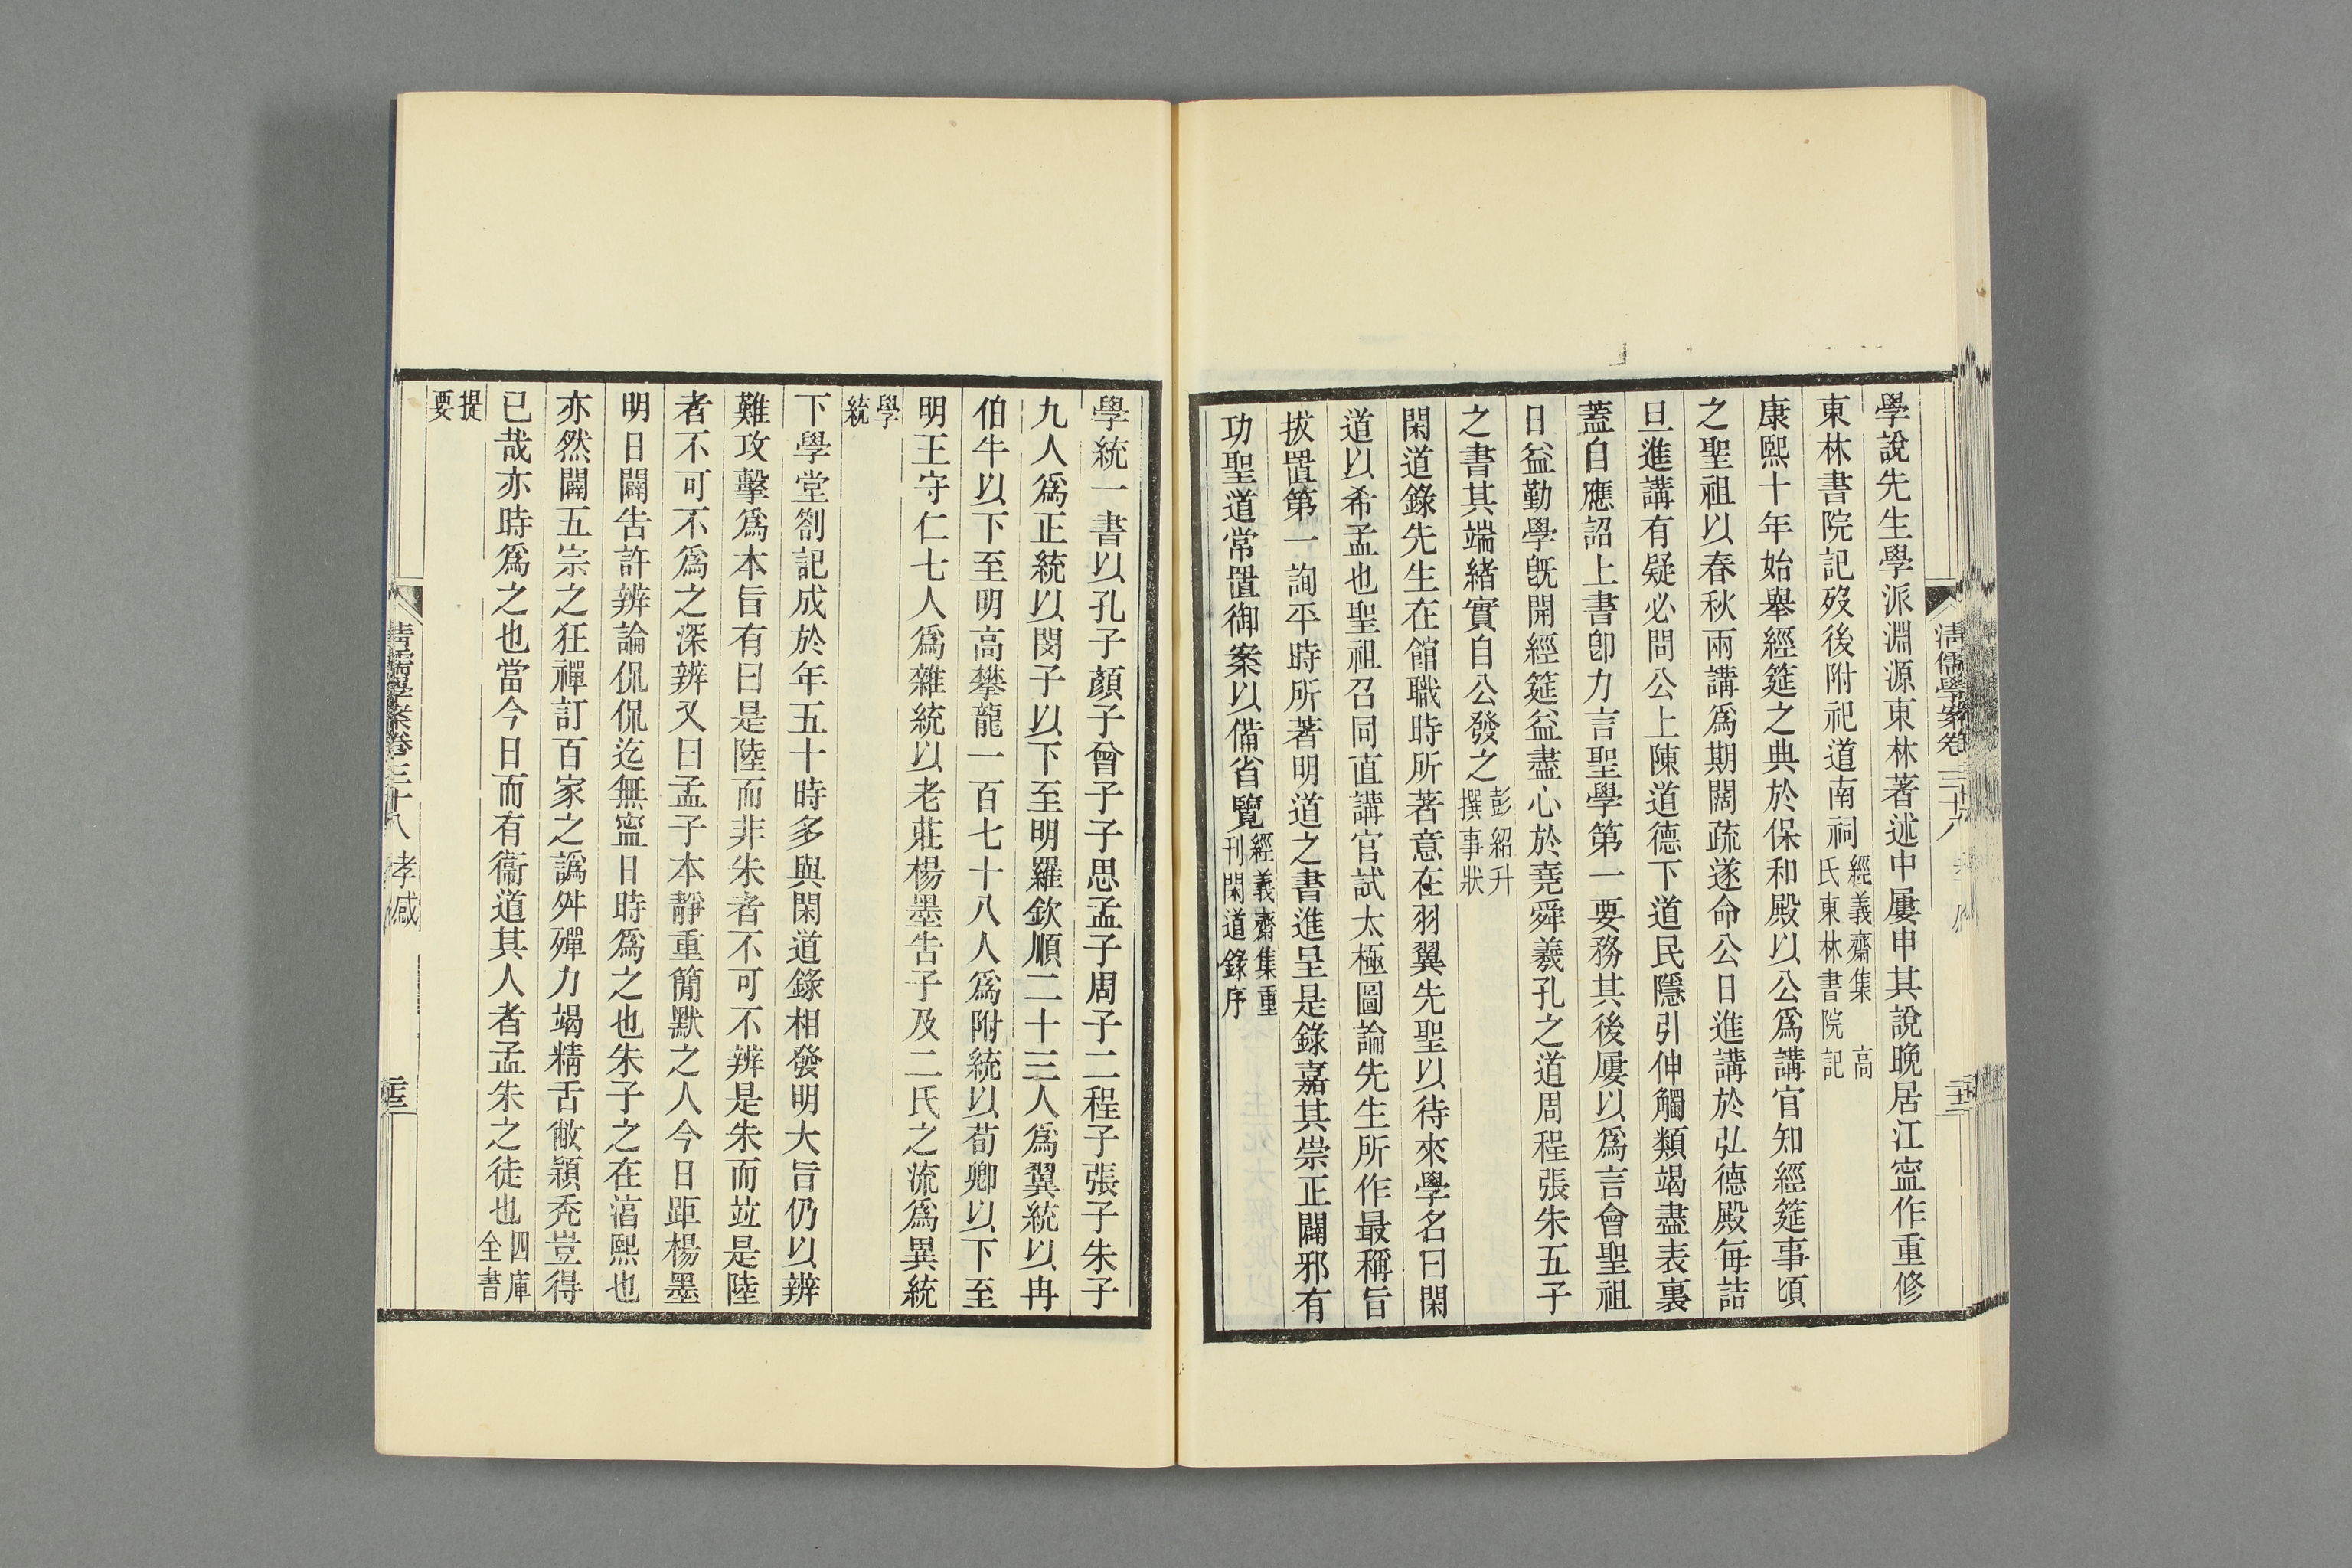 學說先生學派淵源東林著述中屢申其說晚居江寍作重修
東林書院記歿後附祀道南祠經義齋集高
氏東林書院記
康熙十年始舉經筵之典於保和殿以公爲講官知經筵事頃
之聖祖以春秋兩講爲期闊疏遂命公日進講於弘德殿每詰
旦進講有疑必問公上陳道德下道民隱引伸觸類竭盡表裏
蓋自應詔上書卽力言聖學第一要務其後屢以爲言會聖祖
日益勤學旣開經筵益盡心於堯舜羲孔之道周程張朱五子
之書其端緒實自公發之彭紹升
撰事狀
閑道錄先生在館職時所著意在羽翼先聖以待來學名曰閑
道以希孟也聖祖召同直講官試太極圖論先生所作最稱旨
拔置第一詢平時所著明道之書進呈是錄嘉其崇正闢邪有
功聖道常置御案以備省覽經義齋集重
刊閑道錄序
學統一書以孔子顏子曾子子思孟子周子二程子張子朱子
九人爲正統以閔子以下至明羅欽順二十三人爲翼統以冉
伯牛以下至明高攀龍一百七十八人爲附統以荀卿以下至
明王守仁七人爲雜統以老莊楊墨告子及二氏之流爲異統
學
統
下學堂劄記成於年五十時多與閑道錄相發明大旨仍以辨
難攻擊爲本旨有曰是陸而非朱者不可不辨是朱而竝是陸
者不可不爲之深辨又曰孟子本靜重簡默之人今日距楊墨
明日闢告許辨論侃侃迄無寍日時爲之也朱子之在淳熙也
亦然闢五宗之狂禪訂百家之譌舛殫力竭精舌敝穎禿豈得
已哉亦時爲之也當今日而有衞道其人者孟朱之徒也四庫
全書
提
要
清儒學案卷三十八 孝感